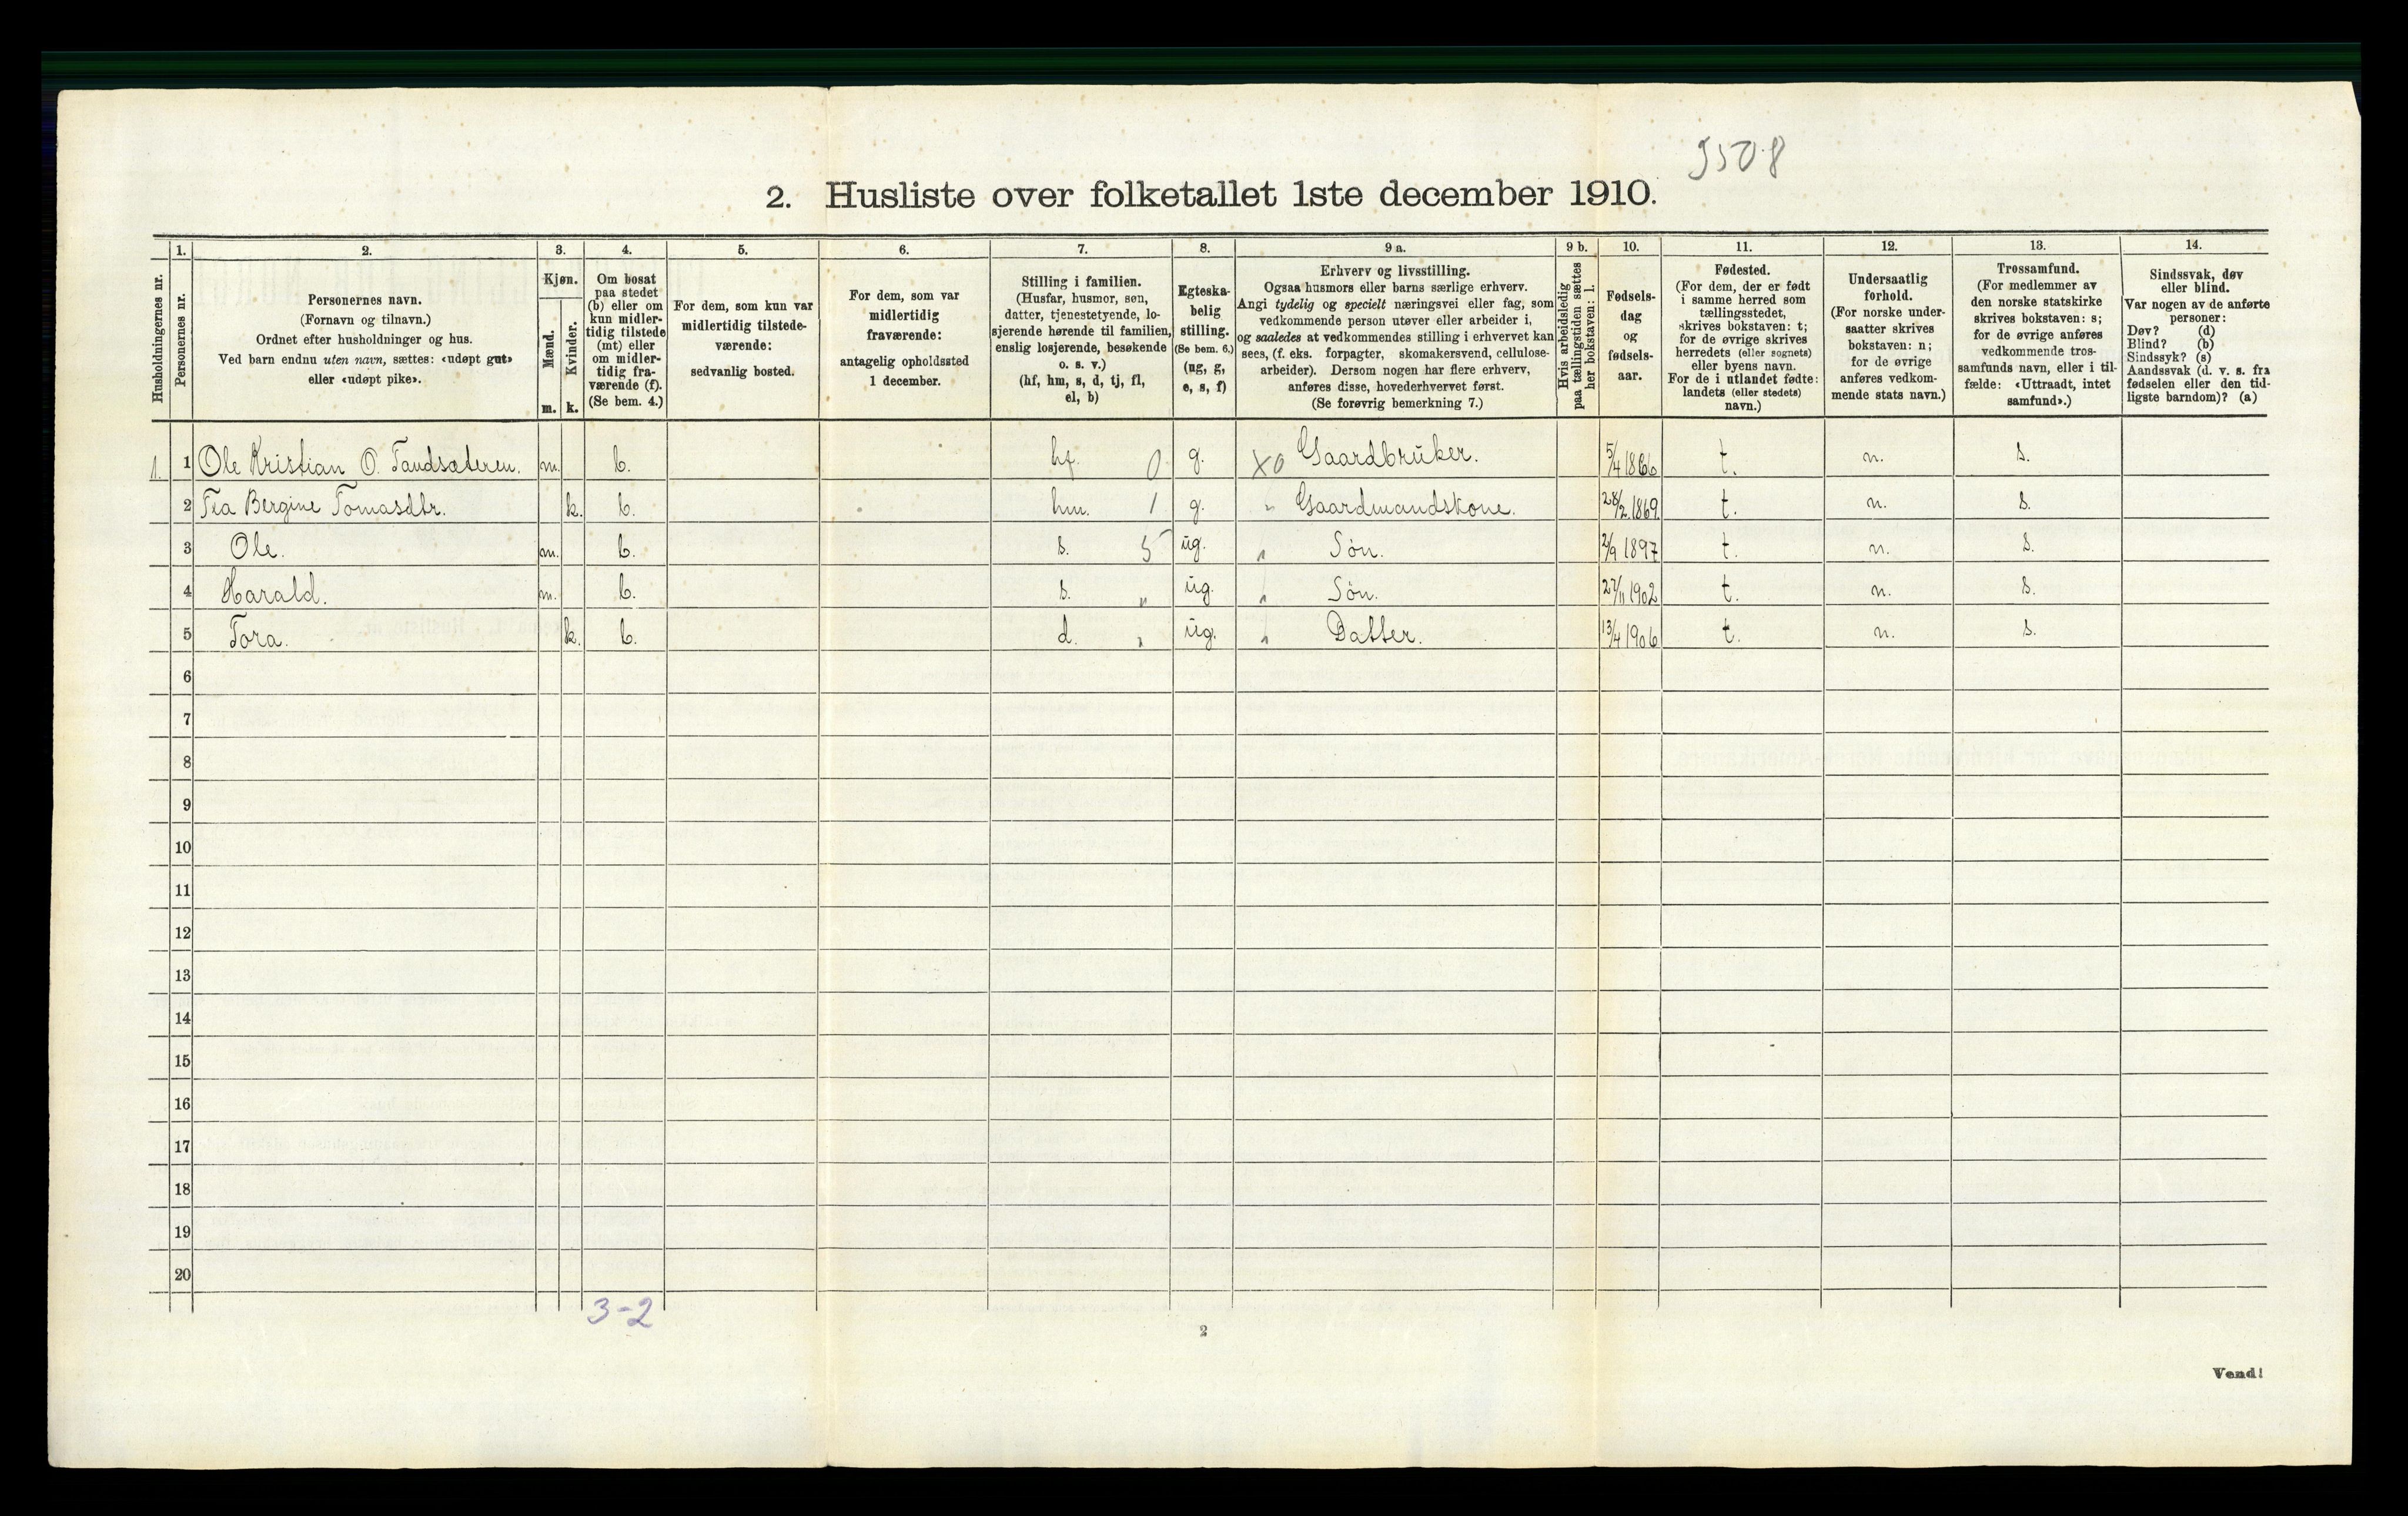 9508
2. Husliste over folketallet 1ste december 1910.
Husholdningernes nr.
1.
Personernes nr.
2.
Personernes navn.
(Fornavn og tilnavn.)
Ordnet efter husholdninger og hus.
Ved barn endnu uten navn, sættes: «udøpt gut»
eller «udøpt pike».
3.
Kjøn.
Mænd.
Kvinder.
m. k.
4.
Om bosat
paa stedet
(b) eller om
kun midler-
tidig tilstede
(mt) eller
om midler-
tidig fra-
værende (f).
(Se bem. 4.)
5.
For dem, som kun var
midlertidig tilstede-
værende:
sedvanlig bosted.
6.
For dem, som var
midlertidig
fraværende:
antagelig opholdssted
1 december.
7.
Stilling i familien.
(Husfar, husmor, søn,
datter, tjenestetyende, lo-
sjerende hørende til familien,
enslig losjerende, besøkende
o. s. v.)
(hf, hm, s, d, tj, fl,
el, b)
8.
Egteska-
belig
stilling.
(Se bem. 6.)
(ug, g,
e, s, f)
9 a.
Erhverv og livsstilling.
Ogsaa husmors eller barns særlige erhverv.
Angi tydelig og specielt næringsvei eller fag, som
vedkommende person utøver eller arbeider i,
og saaledes at vedkommendes stilling i erhvervet kan
sees, (f. eks. forpagter, skomakersvend, cellulose-
arbeider). Dersom nogen har flere erhverv,
anføres disse, hovederhvervet først.
(Se forøvrig bemerkning 7.)
9 b.
Hvis arbeidsledig
paa tællingstiden sættes
her bokstaven: l.
10.
Fødsels-
dag
og
fødsels-
aar.
11.
Fødested.
(For dem, der er født
i samme herred som
tællingsstedet,
skrives bokstaven: t;
for de øvrige skrives
herredets (eller sognets)
eller byens navn.
For de i utlandet fødte:
landets (eller stedets)
navn.)
12.
Undersaatlig
forhold.
(For norske under-
saatter skrives
bokstaven: n;
for de øvrige
anføres vedkom-
mende stats navn.)
13.
Trossamfund.
(For medlemmer av
den norske statskirke
skrives bokstaven: s;
for de øvrige anføres
vedkommende tros-
samfunds navn, eller i til-
fælde: «Uttraadt, intet
samfund».)
14.
Sindssvak, døv
eller blind.
Var nogen av de anførte
personer:
Døv? (d)
Blind? (b)
Sindssyk? (s)
Aandssvak (d. v. s. fra
fødselen eller den tid-
ligste barndom)? (a)
1. 1 Ole Kristian O. Tandsæteren. m. b. hf. 0 g. X0 Gaardbruker. 5/4 1866 t. n. s.
2 Tea Bergine Tomasdtr. k. b. hm. 1 g. " Gaardmandskone. 28/2 1869. t. n. s.
3 Ole. m. b. s. 5 ug. " Søn. 2/9 1897 t. n. s.
4 Harald. m. b. s. " ug. " Søn. 27/11 1902 t. n. s.
5 Tora. k. b. d. " ug. " Datter. 13/4 1906 t. n. s.
6
7
8
9
10
11
12
13
14
15
16
17
18
19
20
3-2
2
Vend!